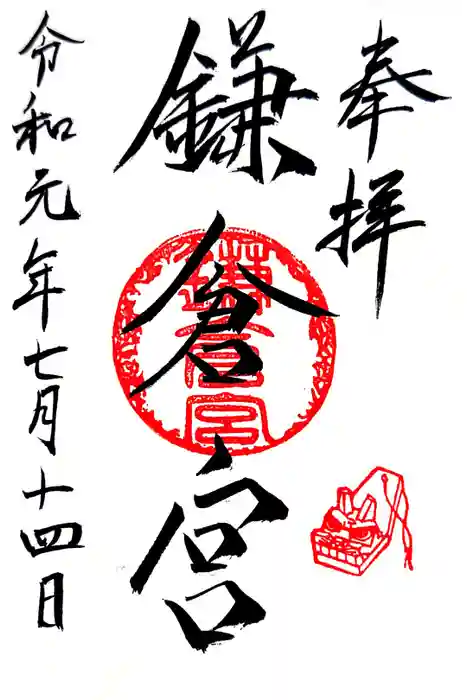 奉拝
鎌倉宮
鎌倉宮
令和元年七月十四日